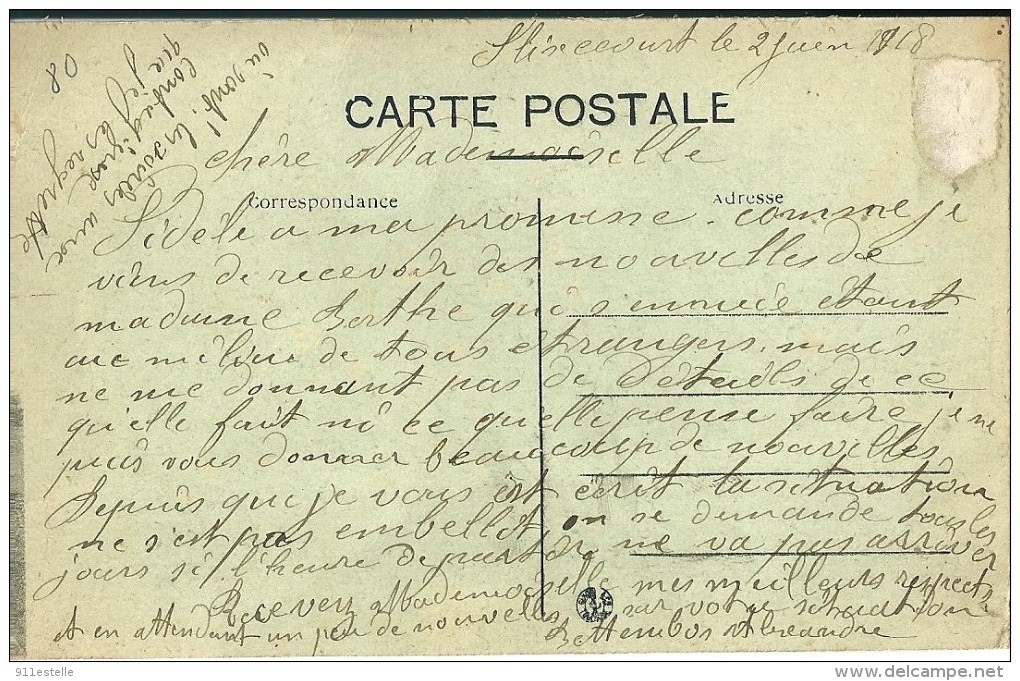 Flixecourt le 2 juin 1918
CARTE POSTALE
chère Mademoiselle
Correspondance
Adresse
Fidèle a ma promesse. comme je
viens de recevoir des nouvelles de
madame Berthe qui s'ennuie étant
au milieu de tous étrangers. mais
ne me donnant pas de détails de ce
qu'elle fait ni ce qu'elle pense faire je ne
puis vous donner beaucoup de nouvelles.
Depuis que je vous est écrit la situation
ne s'est pas embellit, on se demande tous les
jours si l'heure de partir ne va pas arriver
Recevez Mademoiselle mes meilleurs respects
et en attendant un peu de nouvelles sur votre situation
Bettembos Alexandre
où sont les soirées
que j'ai
les regrette
08
911estelle
delcampe.net